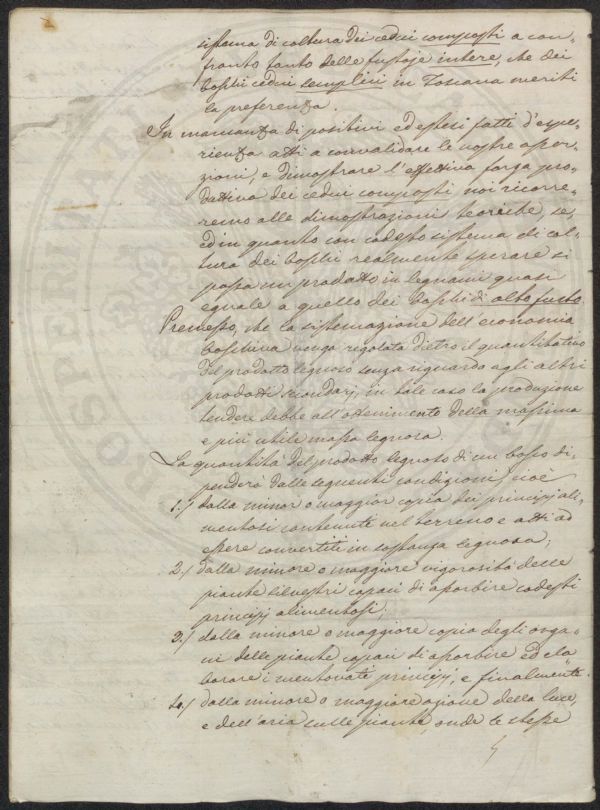 sistema di coltura dei cedui composti a con-
fronto tanto delle fustaje intere, che dei
boschi cedui semplici in Toscana meriti
la preferenza.
In mancanza di positivi ed estesi fatti d'espe-
rienza atti a convalidare le nostre asser-
zioni, e dimostrare l'effettiva forza pro-
duttiva dei cedui composti noi ricorre-
remo alle dimostrazioni teoriche, se,
ed in quanto con codesto sistema di col-
tura dei boschi realmente sperare si
possa un prodotto in legnami quasi
eguale a quello dei boschi di alto fusto.
Premesso, che la sistemazione dell'economia
boschiva venga regolata dietro il quantitativo
del prodotto legnoso senza riguardo agli altri
prodotti secondarj, in tale caso la produzione
tendere debbe all'ottenimento della massima
e più utile massa legnosa.
La quantità del prodotto legnoso di un bosco di-
penderà dalle seguenti condizioni, cioè
1./ dalla minor o maggior copia dei principj ali-
mentosi contenuti nel terreno e atti ad
essere convertiti in sostanza legnosa;
2./ dalla minore o maggiore vigorosità delle
piante silvestri capaci di assorbire codesti
principj alimentosi;
3./ dalla minore o maggiore copia degli orga-
ni delle piante capaci di assorbire ed ela-
borare i mentovati principj, e finalmente
4./ dalla minore o maggiore azione della luce,
e dell'aria sulle piante, onde le stesse
PROSPERIMATI